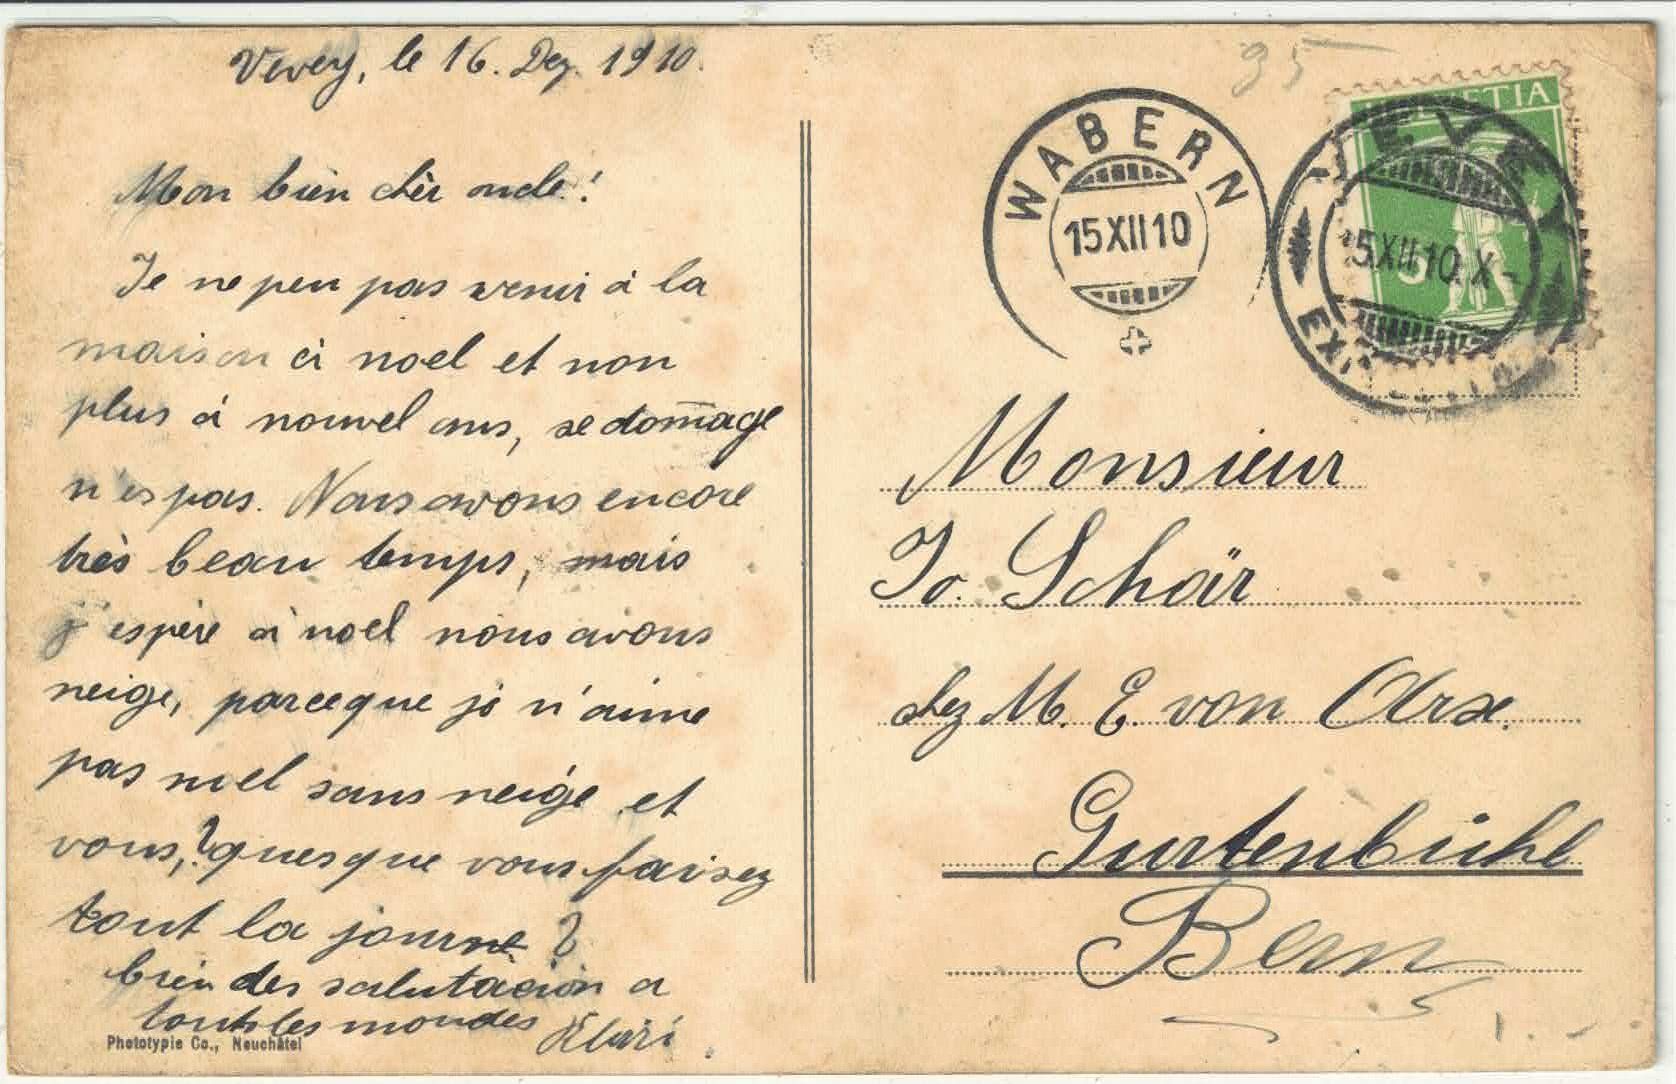 Vevey, le 16. Dez. 1910.
Mon bien chèr oncle!
Je ne peu pas venir à la
maison à noel et non
plus à nouvel ans, se dom̄age
n'es pas. Nous avons encore
très beau temps, mais
j'espère à noel nous avons
neige, parceque je n'aime
pas noel sans neige et
vous,? quesque vous faisez
tout la journe ?
bien des salutacion a
touts les mondes Kläri.
Phototypie Co., Neuchâtel
95
WABERN
15XII10
HELVETIA
5
VEVEY
15XII10.X-
EXP.
Monsieur
Jo. Schär
chez M. E. von Arx.
Gurtenbühl
Bern